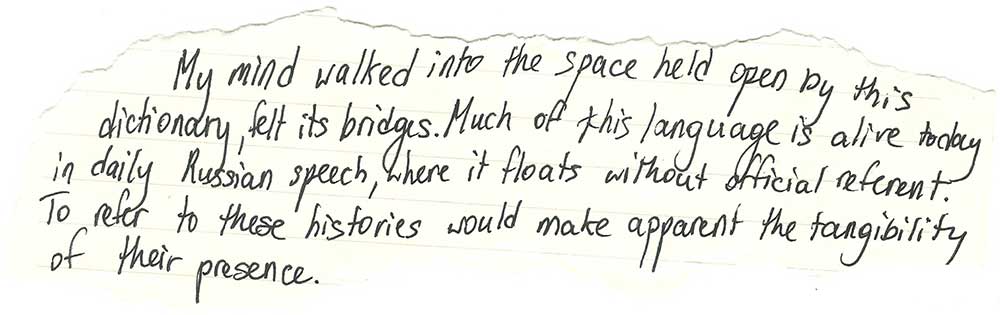 My mind walked into the space held open by this
dictionary, felt its bridges. Much of this language is alive today
in daily Russian speech, where it floats without official referent.
To refer to these histories would make apparent the tangibility
of their presence.